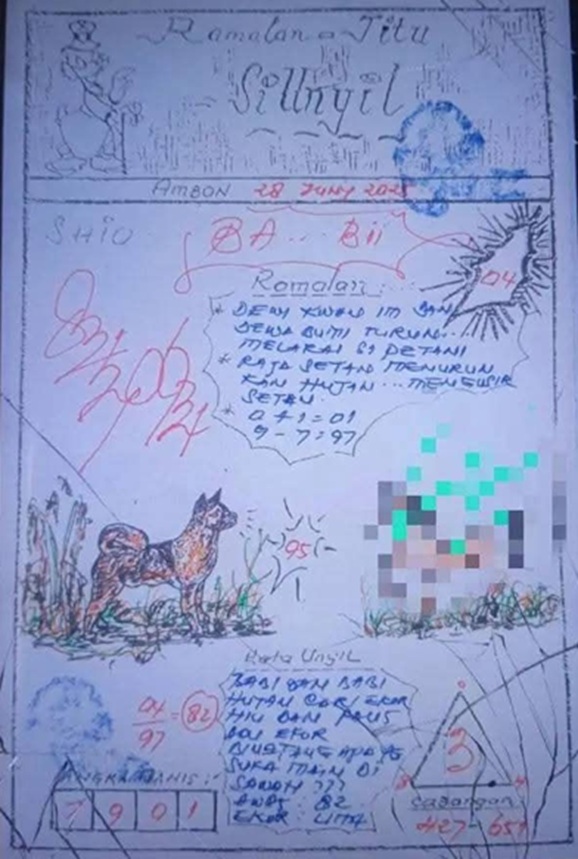 Ramalan a Jitu
Sillnyil
AMBON 28 JUNY 202
SHIO
BA... Bii
04
Ramalan:
* DEWI KWAN IM DAN
DEWA BUMI TURUN...
MELARAI SI PETANI
* RAJA SETAN MENURUN
KAN HUJAN... MENGUSIR
SETAN
* 0+1=01
9-7=97
95
Kata Unyil
BABI DAN BABI
HUTAN CARI EKOR
HIU DAN PAUS
ADU EKOR
BINATANG APA YG
SUKA MAIN DI
SAWAH ???
AWAS: 82
EKOR: LIMA
04/97 = 82
ANGKA MANIS:
7 9 0 1
3
Cadangan
427-651